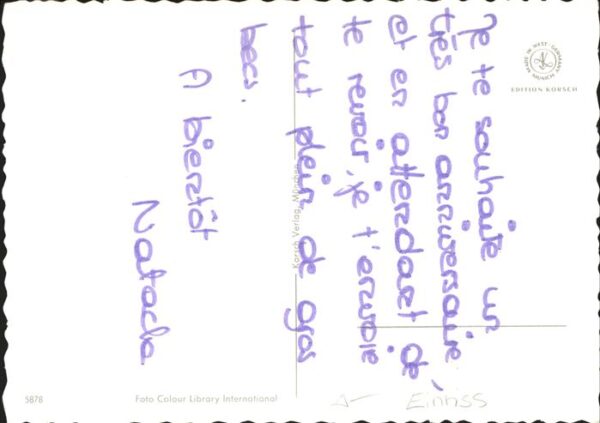 Je te souhaite un
très bon anniversaire,
et en attendant de
te revoir, je t'envoie
tout plein de gros
becs.
A bientôt
Natacha
MADE IN WEST-GERMANY
MUNICH
EDITION KORSCH
Korsch Verlag, München
5878
Foto Colour Library International
Einriss